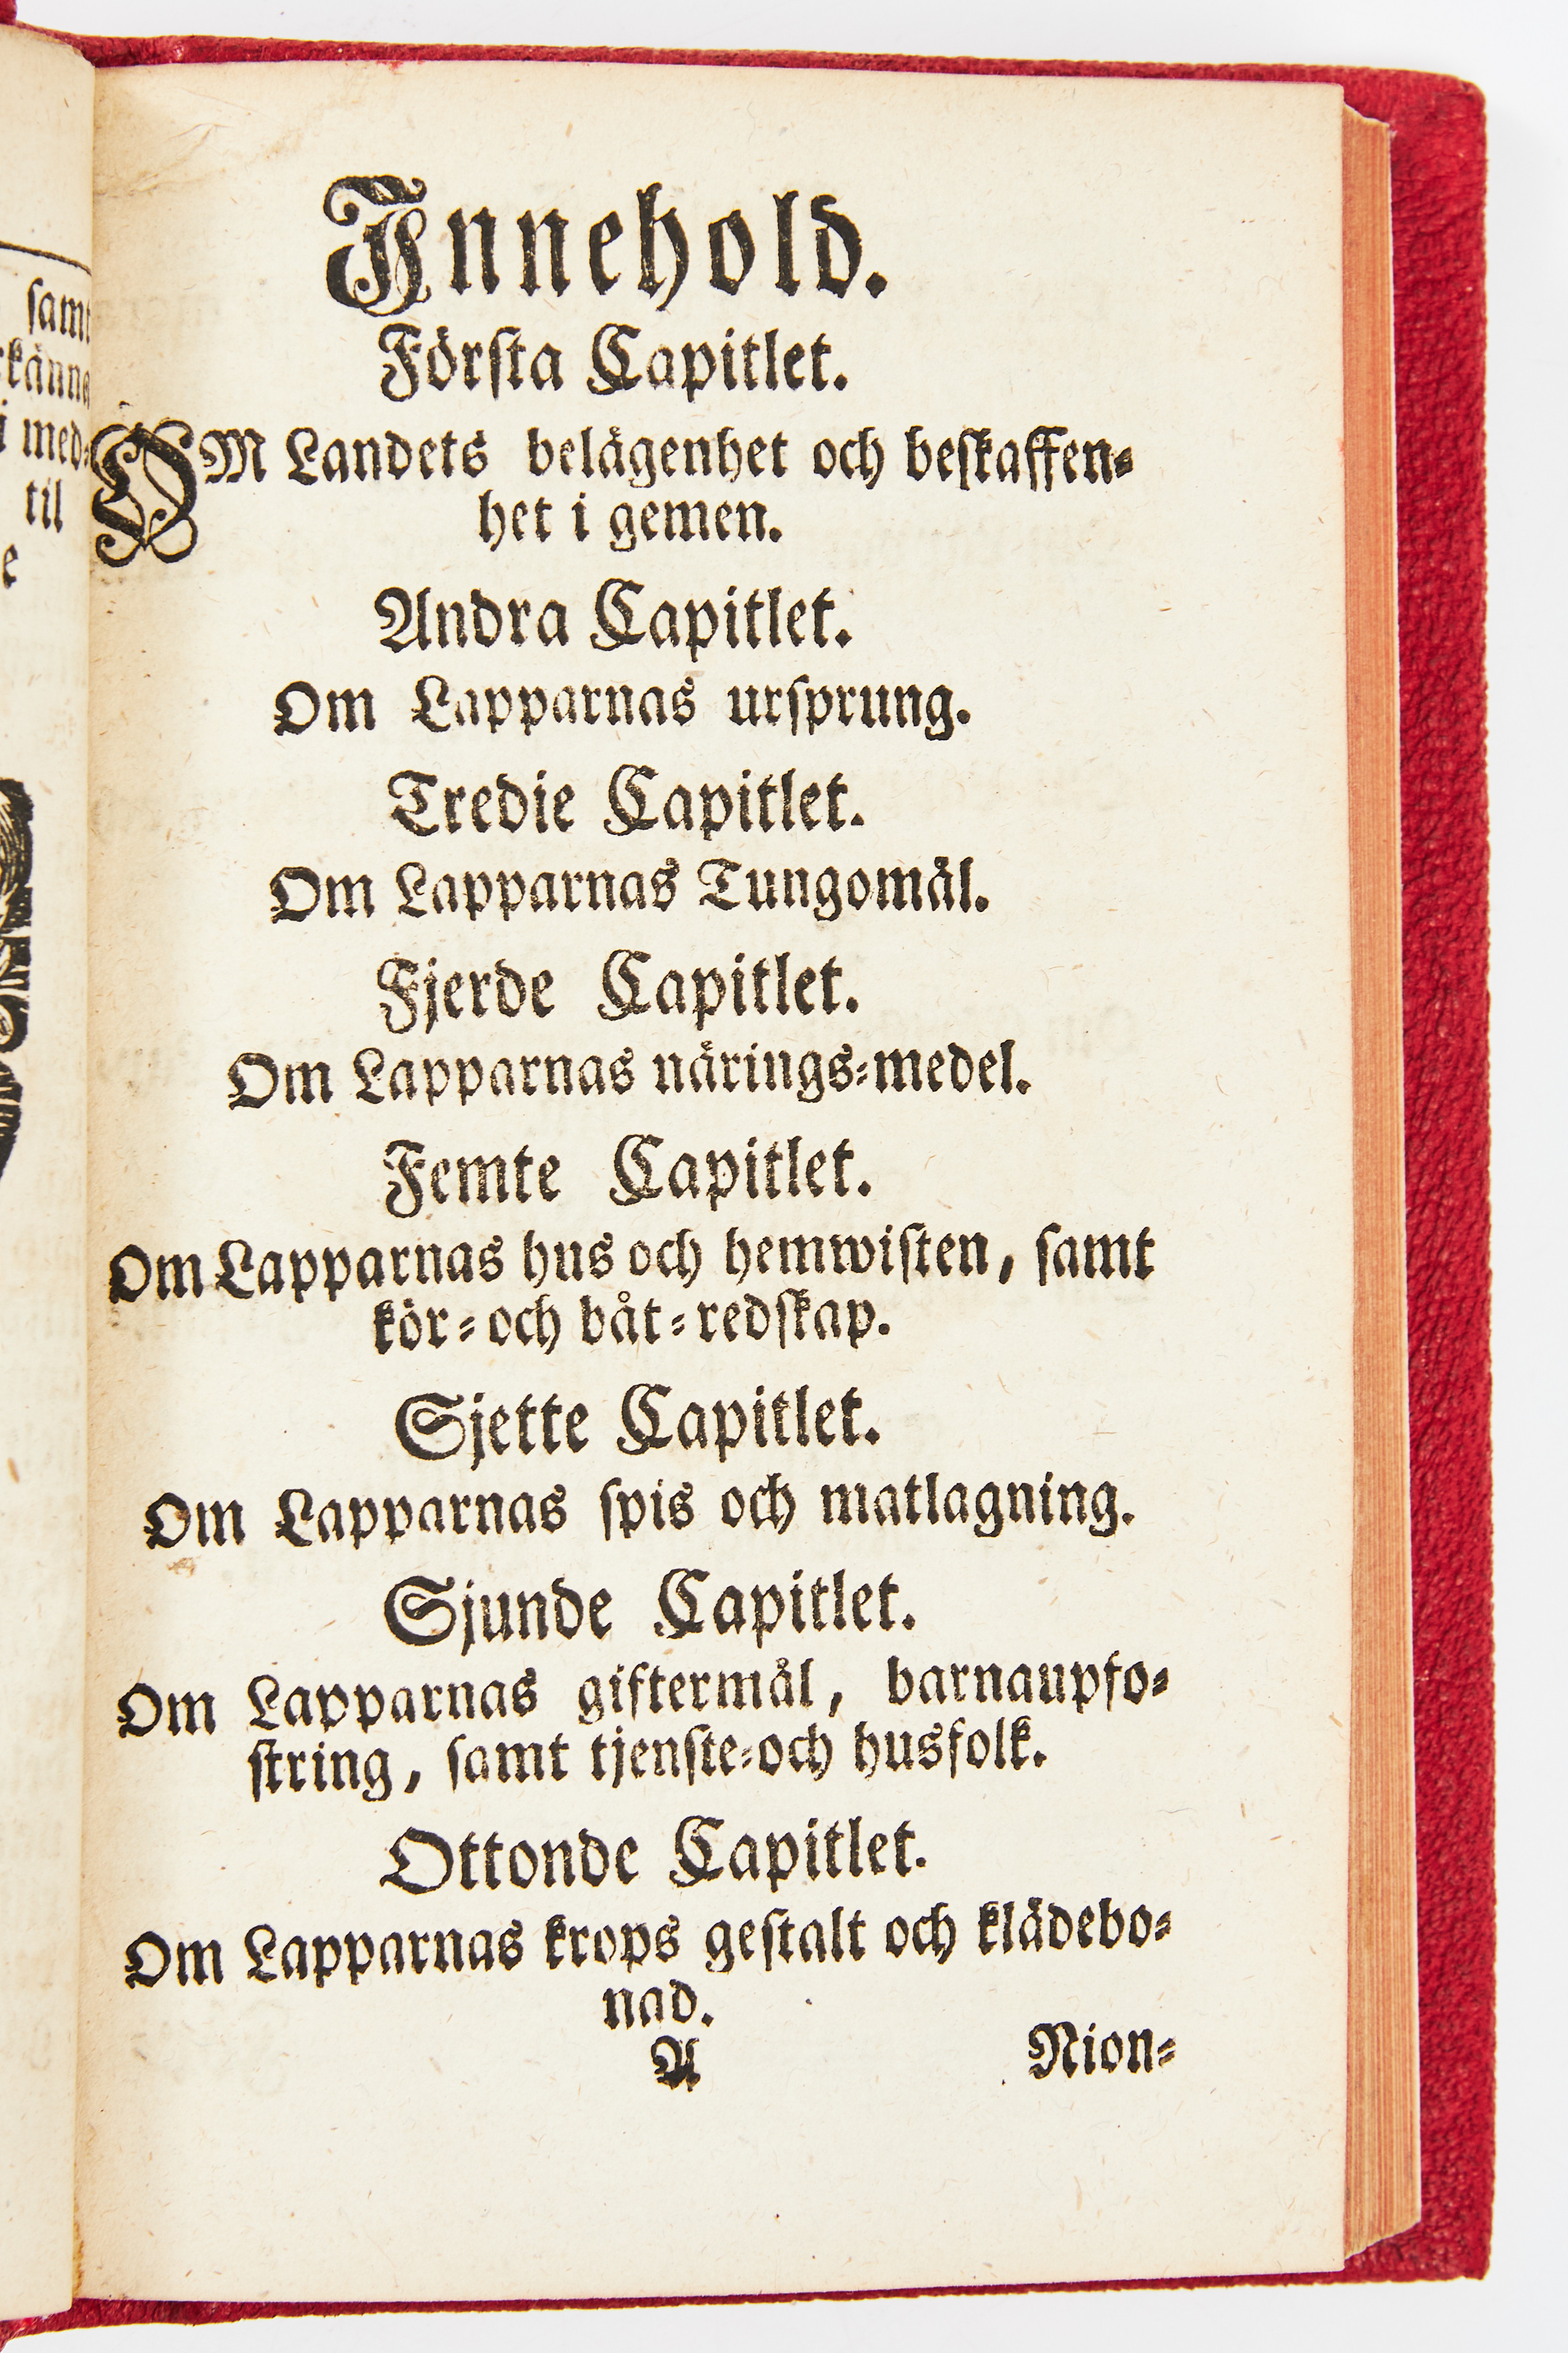 samt
i med=
til
e
Innehold.
Första Capitlet.
OM Landets belägenhet och beskaffen=
het i gemen.
Andra Capitlet.
Om Lapparnas ursprung.
Tredie Capitlet.
Om Lapparnas Tungomål.
Fjerde Capitlet.
Om Lapparnas närings=medel.
Femte Capitlet.
Om Lapparnas hus och hemwisten, samt
kör= och båt=redskap.
Sjette Capitlet.
Om Lapparnas spis och matlagning.
Sjunde Capitlet.
Om Lapparnas giftermål, barnaupfo=
string, samt tjenste=och husfolk.
Ottonde Capitlet.
Om Lapparnas krops gestalt och klädebo=
nad.
A
Nion=